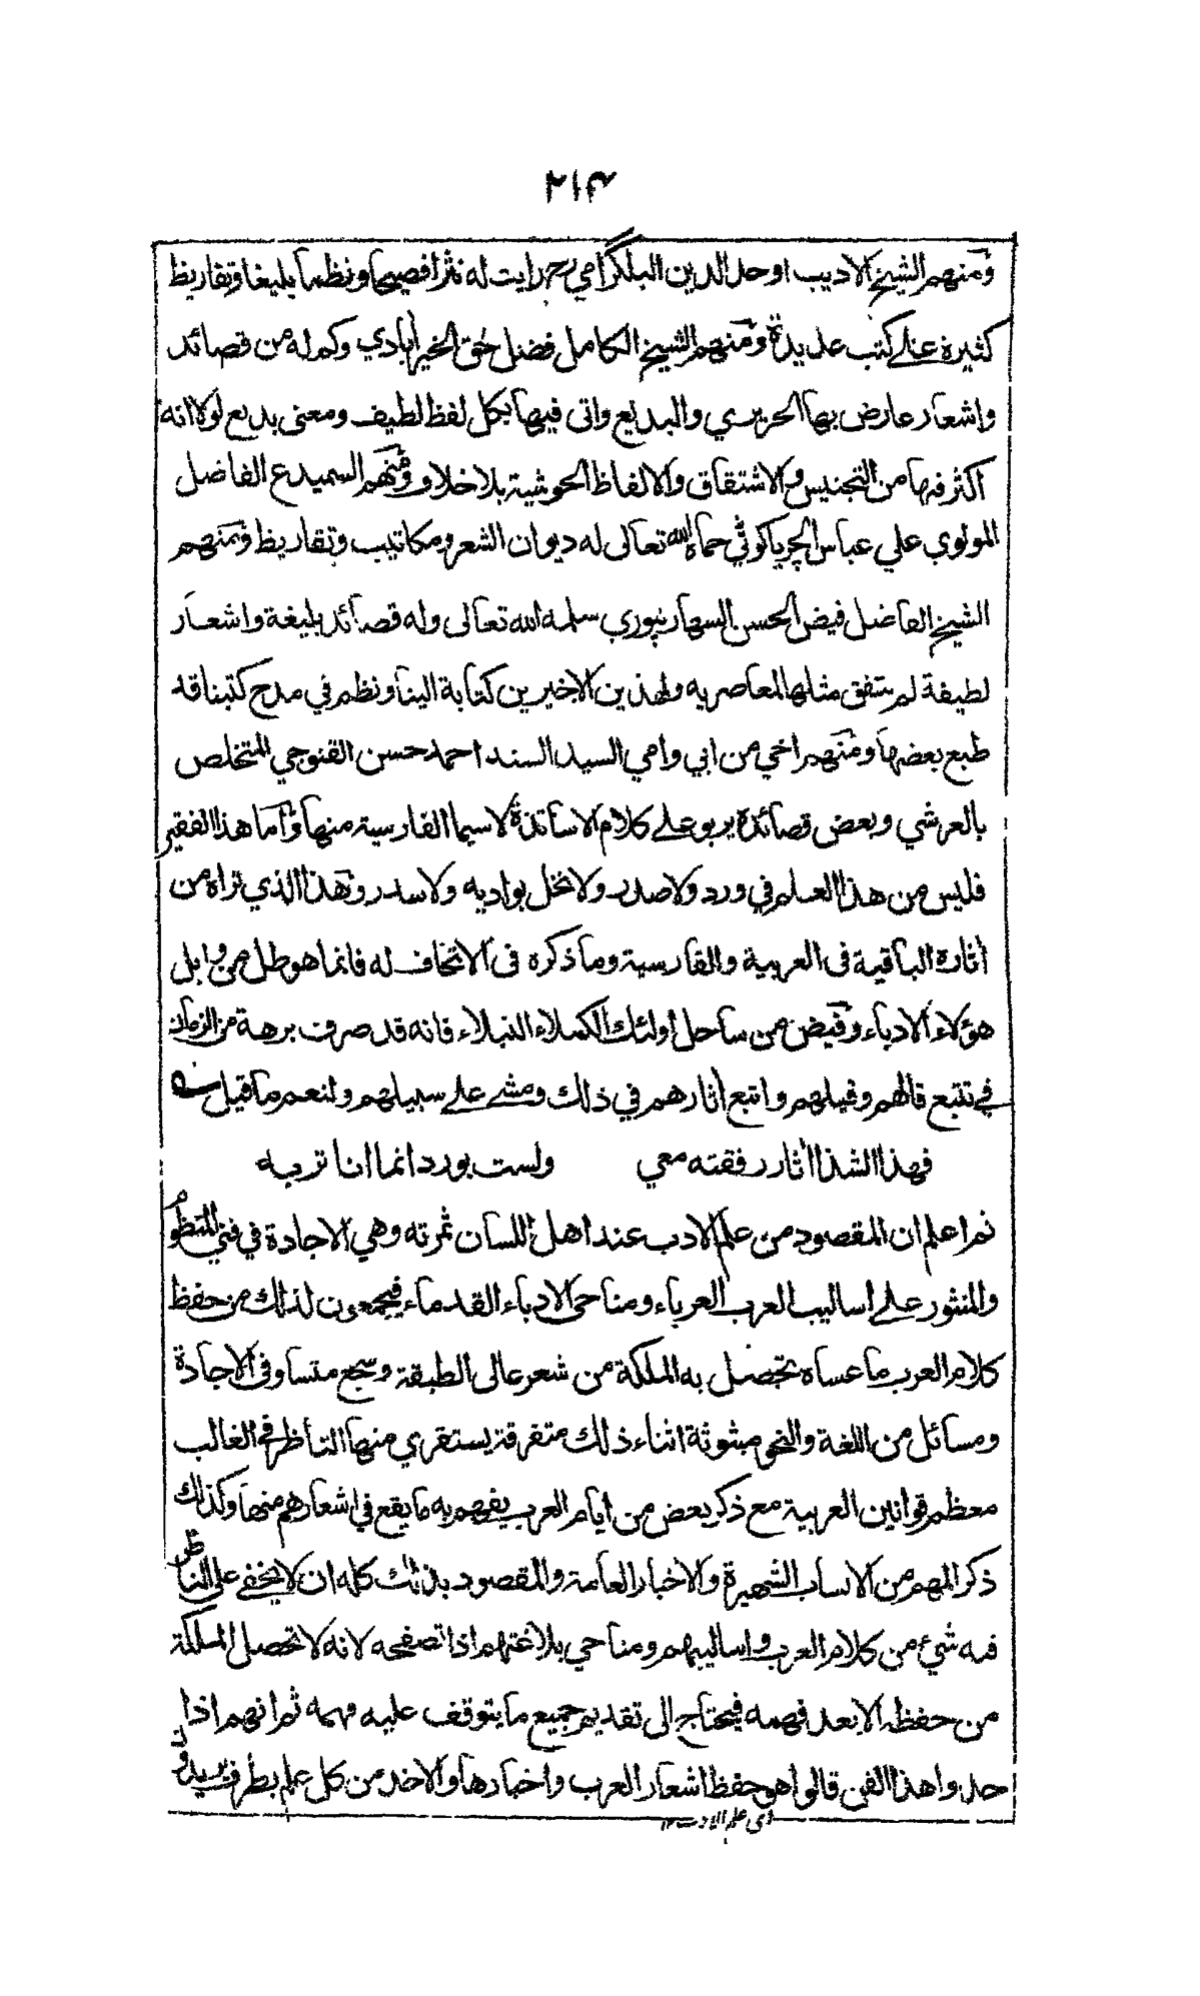 ٢١٤
ومنهم الشيخ الاديب اوحد الدين البلگرامي رح رايت له نثرا فصيحا ونظما بليغا وتقاريظ
كثيرة على كتب عديدة ومنهم الشيخ الكامل فضل حق الخيرابادي وكم له من قصائد
واشعار عارض بها الحريري والبديع واتى فيها بكل لفظ لطيف ومعنى بديع لولا انه
اكثر فيها من التجنيس والاشتقاق والالفاظ الحوشية بلا خلاف ومنهم السميدع الفاضل
المولوي علي عباس الچرياكوٹي حماه الله تعالى له ديوان الشعر ومكاتيب وتقاريظ ومنهم
الشيخ الفاضل فيض الحسن السهارنپوري سلمه الله تعالى وله قصائد بليغة واشعار
لطيفة لم يتفق مثلها لمعاصريه ولهذين الاخيرين كتابة الينا ونظم في مدح كتبنا قد
طبع بعضها ومنهم اخي من ابي وامي السيد السند احمد حسن القنوجي المتخلص
بالعرشي وبعض قصائده يربو على كلام الاساتذة لاسيما الفارسية منها واما هذا الفقير
فليس من هذا العلم في ورد ولا صدر ولا نخل بواديه ولا سدر وهذا الذي تراه من
اثاره الباقية فى العربية والفارسية وما ذكره فى الاتحاف له فانما هو طل من وابل
هؤلاء الادباء وفيض من ساحل اولئك الكملاء النبلاء فانه قد صرف برهة من الزمان
في تتبع قالهم وقيلهم واتبع اثارهم في ذلك ومشى على سبيلهم ولنعم ما قيل
فهذا الشذا اثار رفقته معي ولست بورد انما انا تربه
ثم اعلم ان المقصود من علم الادب عند اهل اللسان ثمرته وهي الاجادة في فني المنظوم
والمنثور على اساليب العرب العرباء ومناحى الادباء القدماء فيجمعون لذلك من حفظ
كلام العرب ما عساه تحصل به الملكة من شعر عالى الطبقة وسجع متساو فى الاجادة
ومسائل من اللغة والنحو مبثوثة اثناء ذلك متفرقة يستقري منها الناظر في الغالب
معظم قوانين العربية مع ذكر بعض من ايام العرب يفهم به ما يقع في اشعارهم منها وكذلك
ذكر المهم من الانساب الشهيرة والاخبار العامة والمقصود بذلك كله ان لا يخفى على الناظر
فيه شيء من كلام العرب واساليبهم ومناحي بلاغتهم اذا تصفحه لانه لا تحصل الملكة
من حفظه الا بعد فهمه فيحتاج الى تقديم جميع ما يتوقف عليه فهمه ثم انهم اذا
حدوا هذا الفن قالوا هو حفظ اشعار العرب واخبارها والاخذ من كل علم بطرف يريدون
اى علم الادب ١٢